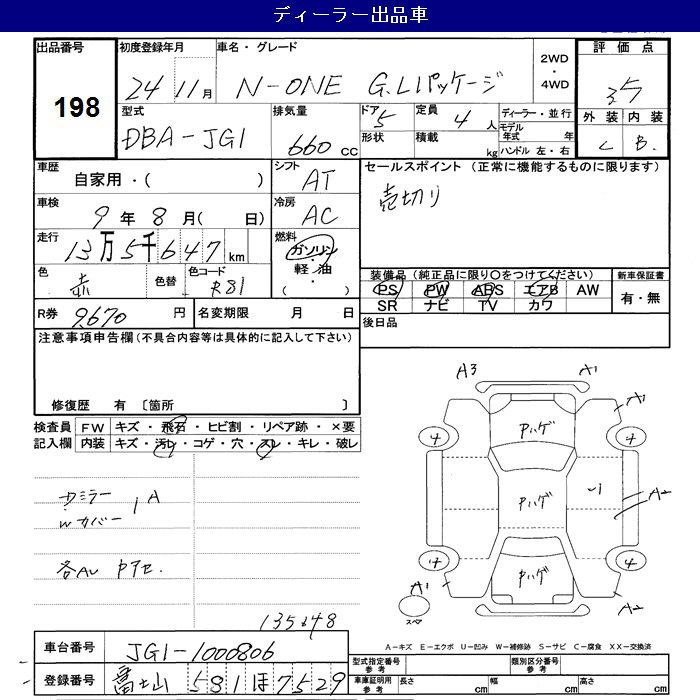 ディーラー出品車
出品番号 198
初度登録年月 24 11月
車名・グレード N-ONE G.Lパッケージ
2WD・4WD
評価点 3.5
外装 内装
C B.
型式 DBA-JG1
排気量 660 cc
ドア 5
形状
定員 4人
積載 kg
ディーラー・並行
モデル年式 年
ハンドル 左・右
車歴 自家用・( )
シフト AT
セールスポイント (正常に機能するものに限ります)
売切り
車検 9年8月( 日)
冷房 AC
走行 13万5千647km
燃料 ガソリン・軽油・( )
色 赤 色替
色コード R81
装備品 (純正品に限り○をつけてください)
PS PW ABS エアB AW
SR ナビ TV カワ
新車保証書 有・無
R券 9,670円
名変期限 月 日
後日品
注意事項申告欄(不具合内容等は具体的に記入して下さい)
修復歴 有 〔箇所 〕
検査員記入欄
FW キズ・飛石・ヒビ割・リペア跡・×要
内装 キズ・汚レ・コゲ・穴・スレ・キレ・破レ
サミラー
Wカバー 1A
各AU Pアセ.
135648
A3 A1
A1
4 4
Pハゲ
Pハゲ
A2
4 4
Pハゲ
A1
A2
スペア
A-キズ E-エクボ U-凹み W-補修跡 S-サビ C-腐食 XX-交換済
車台番号 JG1-1000806
登録番号 富士山 581 ほ 7529
型式指定番号 参考
類別区分番号 参考
車庫証明用 参考 長さ cm 幅 cm 高さ cm